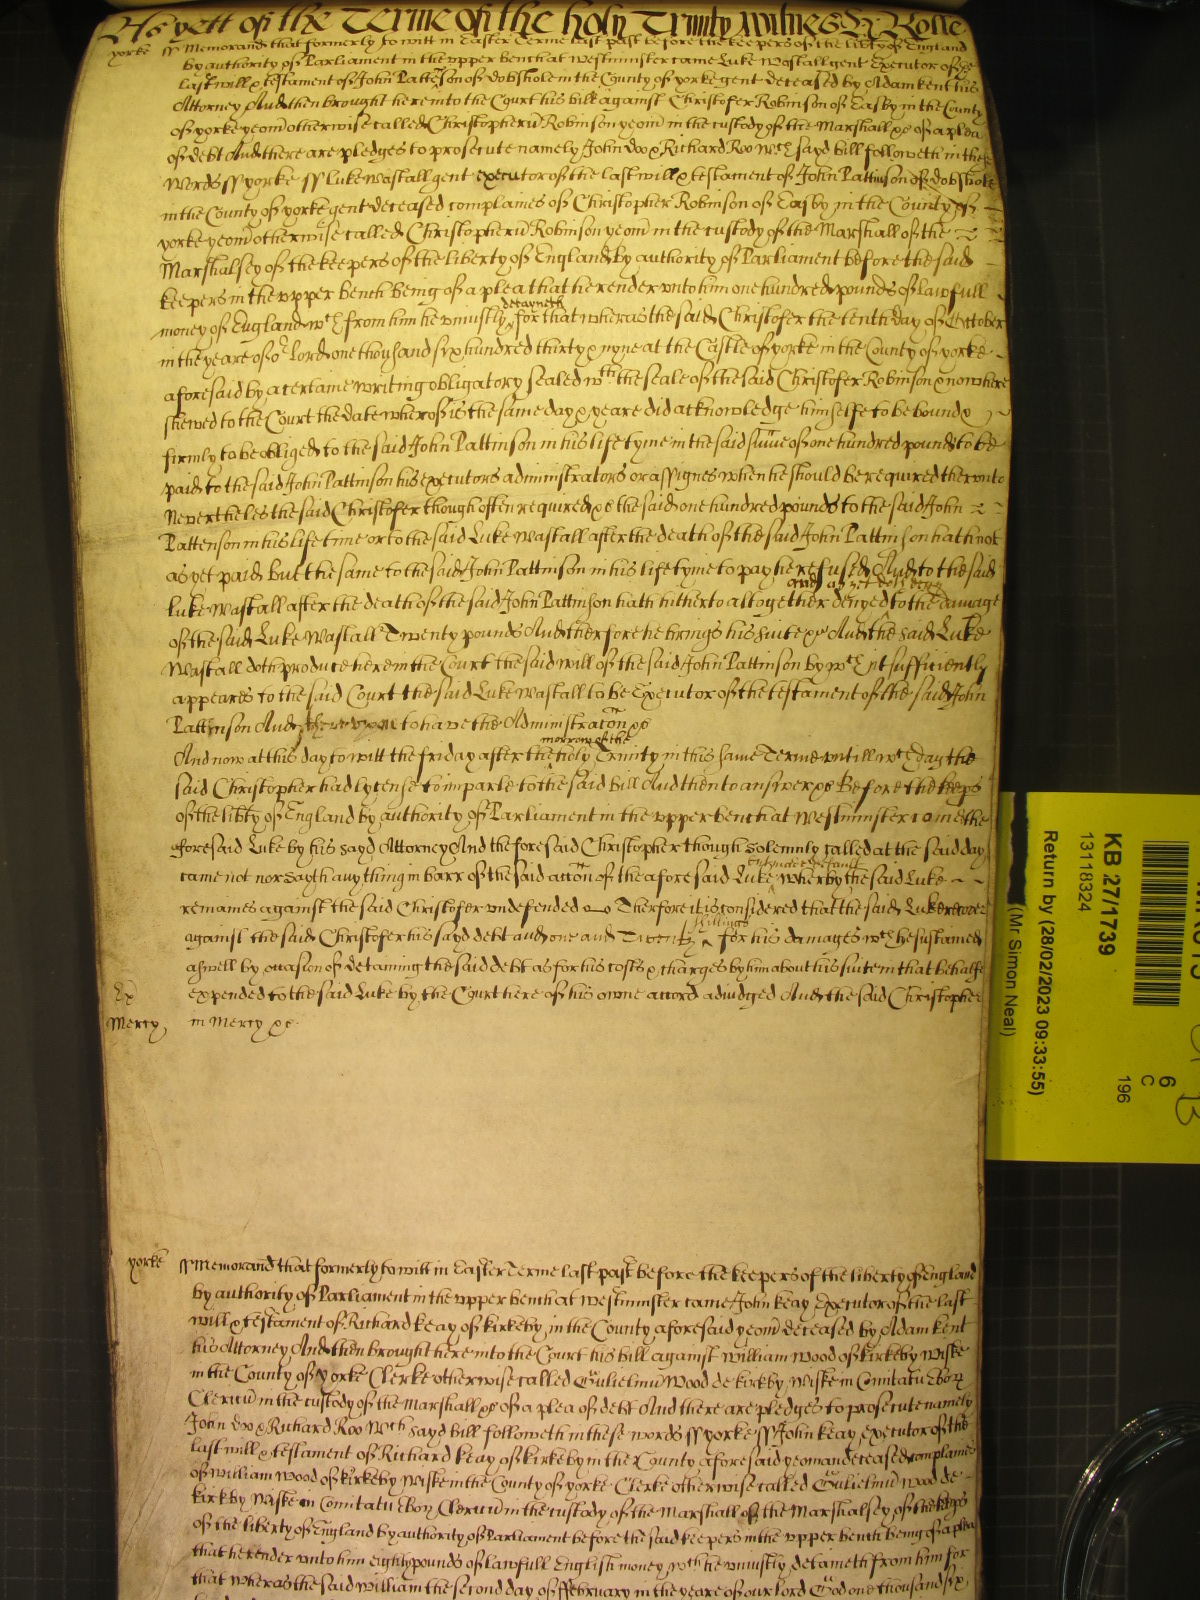 As yett of the Terme of the holy Trinity Witnes H: Rolle
yorke ss Memorand that formerly to witt in Easter Terme last past before the keepers of the lib'ty of England
by authority of Parliament in the upper bench at Westminster came Luke Wastall gent Executor of the
last will & testament of John Pattison of dobshole in the County of yorke gent deceased by Adam kent his
Attorney And then brought here into the Court his bill against Christofer Robinson of Easby in the County
of yorke yeom otherwise called Christopheru Robinson yeom in the custody of the Marshall &c of a plea
of debt And there are pledges to prosecute namely John doo & Richard Roo wch sayd bill followeth in these
words ss yorke ss Luke Wastall gent executor of the last will & testament of John Pattinson of dobshole
in the County of yorke gent deceased complaines of Christopher Robinson of Easby in the County of
yorke yeom otherwise called Christopheru Robinson yeom in the custody of the Marshall of the
Marshalsey of the keepers of the liberty of England by authority of Parliament before the said
keepers in the upper bench being of a plea that he render unto him one hundred pounds of lawfull
money of England wch from him he uniustly detayneth for that wheras the said Christofer the tenth day of October
in the yeare of or Lord one thousand six hundred thirty & nyne at the Castle of yorke in the County of yorke
aforesaid by a certaine writing obligatory sealed wth the seale of the said Christofer Robinson & now here
shewed to the Court the date wherof is the same day & yeare did acknowledge himselfe to be bound &
firmly to be obliged to the said John Pattinson in his life tyme in the said sume of one hundred pounds to be
paid to the said John Pattinson his executors administrators or assignes when he should be required therunto
Neverthelesse the said Christofer though often required &c the said one hundred pounds to the said John
Pattenson in his life time or to the said Luke Wastall after the death of the said John Pattinson hath not
as yet paid but the same to the said John Pattinson in his life tyme to pay he refused And to the said
Luke Wastall after the death of the said John Pattinson hath hitherto altogether denyed and as yet doth deny to the damage
of the said Luke Wastall Twenty pounds And therfore he brings his suite &c And the said Luke
Wastall doth produce here in the Court the said will of the said John Pattinson by wch it sufficiently
appeares to the said Court the said Luke Wastall to be Executor of the testament of the said John
Pattinson And thereupon to have the Administracon &c
And now at this day to witt the friday after the morrow of the holy Trinity in this same Terme untill wch day the
said Christopher had lycense to imparle to the said bill And then to answer &c Before the keeps
of the lib'ty of England by authority of Parliament in the upper bench at Westminster came the
foresaid Luke by his sayd Attorney And the foresaid Christopher though solemnly called at the said day
came not nor sayth any thing in barr of the said accon of the aforesaid Luke wherby the said Luke
remaines against the said Christofer undefended Therfore it is considered that the said Luke recover
against the said Christofer his sayd debt and one and Twenty shillings for his damages wch he sustained
aswell by occasion of detaining the said debt as for his costs & charges by him about his suite in that behalfe
expended to the said Luke by the Court here of his owne accord adiudged And the said Christopher
Mercy in Mercy &c
yorke ss Memorand that formerly to witt in Easter Terme last past before the keepers of the liberty of England
by authority of Parliament in the upper bench at Westminster came John Keay Executor of the last
will & testament of Richard Keay of kirkeby in the County aforesaid yeom deceased by Adam Kent
his Attorney And then brought here into the Court his bill against William Wood of kirkeby Wiske
in the County of yorke Clerke otherwise called Gulielmu Wood de kirkby Wiske in Comitatu Ebor
Clericu in the custody of the Marshall &c of a plea of debt And there are pledges to prosecute namely
John doo & Richard Roo wch sayd bill followeth in these words ss yorke ss John Keay executor of the
last will & testament of Richard Keay of kirkeby in the County aforesaid yeoman deceased complaines
of William Wood of kirkeby Wiske in the County of yorke Clerke otherwise called Gulielmu Wood de
kirkeby Wiske in Comitatu Ebor Clericu in the custody of the Marshall of the Marshalsey of the keeps
of the liberty of England by authority of Parliament before the said keepers in the upper bench being of a plea
that he render unto him eighty pounds of lawfull English money wch he uniustly detaineth from him for
that wheras the said William the second day of ffebruary in the yeare of our Lord God one thousand six
KB 27/1739
13118324
Return by (28/02/2023 09:33:55)
(Mr Simon Neal)
6
C
196